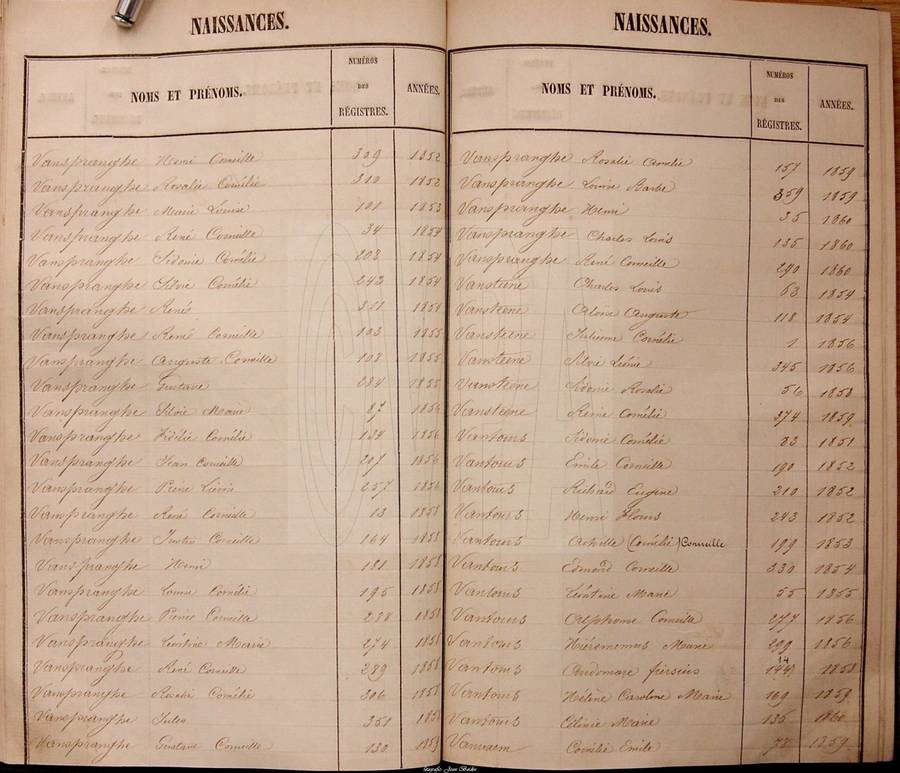 NAISSANCES.
NOMS ET PRÉNOMS.
NUMÉROS
DES
RÉGISTRES.
ANNÉES.
Vanspranghe Henri Corneille 309 1852
Vanspranghe Rosalie Cornélie 310 1852
Vanspranghe Marie Louise 101 1853
Vanspranghe René Corneille 34 1854
Vanspranghe Sidonie Cornélie 208 1854
Vanspranghe Silvie Cornélie 243 1854
Vanspranghe René 1854
Vanspranghe René Corneille 103 1855
Vanspranghe Auguste Corneille 108 1855
Vanspranghe Gustave 284 1855
Vanspranghe Silvie Marie 87 1856
Vanspranghe Fidélie Cornélie 134 1856
Vanspranghe Jean Corneille 207 1856
Vanspranghe 257 1856
Vanspranghe René Corneille 13 1858
Vanspranghe Justin Corneille 164 1858
Vanspranghe Henri 181 1858
Vanspranghe Louise Cornélie 195 1858
Vanspranghe Pierre Corneille 288 1858
Vanspranghe Léontine Marie 274 1858
Vanspranghe René Corneille 289 1858
Vanspranghe Rosalie Cornélie 306 1858
Vanspranghe Jules 351 1858
Vanspranghe Gustave Corneille 130 1859
NAISSANCES.
NOMS ET PRÉNOMS.
NUMÉROS
DES
RÉGISTRES.
ANNÉES.
Vanspranghe Rosalie 157 1859
Vanspranghe Louise Barbe 359 1859
Vanspranghe Henri 35 1860
Vanspranghe Charles Louis 135 1860
Vanspranghe René Corneille 290 1860
Vansteene Charles Louis 63 1854
Vansteene Auguste 118 1854
Vansteene Julienne Cornélie 1 1856
Vansteene Silvie 345 1856
Vansteene Sidonie Rosalie 56 1858
Vansteene Cornélie 374 1859
Vantours Sidonie Cornélie 23 1851
Vantours Emile Corneille 190 1852
Vantours Richard Eugène 210 1852
Vantours Henri 243 1852
Vantours (Cornélie) Corneille 199 1853
Vantours Edmond Corneille 330 1854
Vantours Léontine Marie 55 1855
Vantours Alphonse 277 1856
Vantours Marie 299 1856
Vantours 1858
Vantours Hélène Caroline Marie 169 1859
Vantours Marie 135 1860
Cornélie Emile 1859